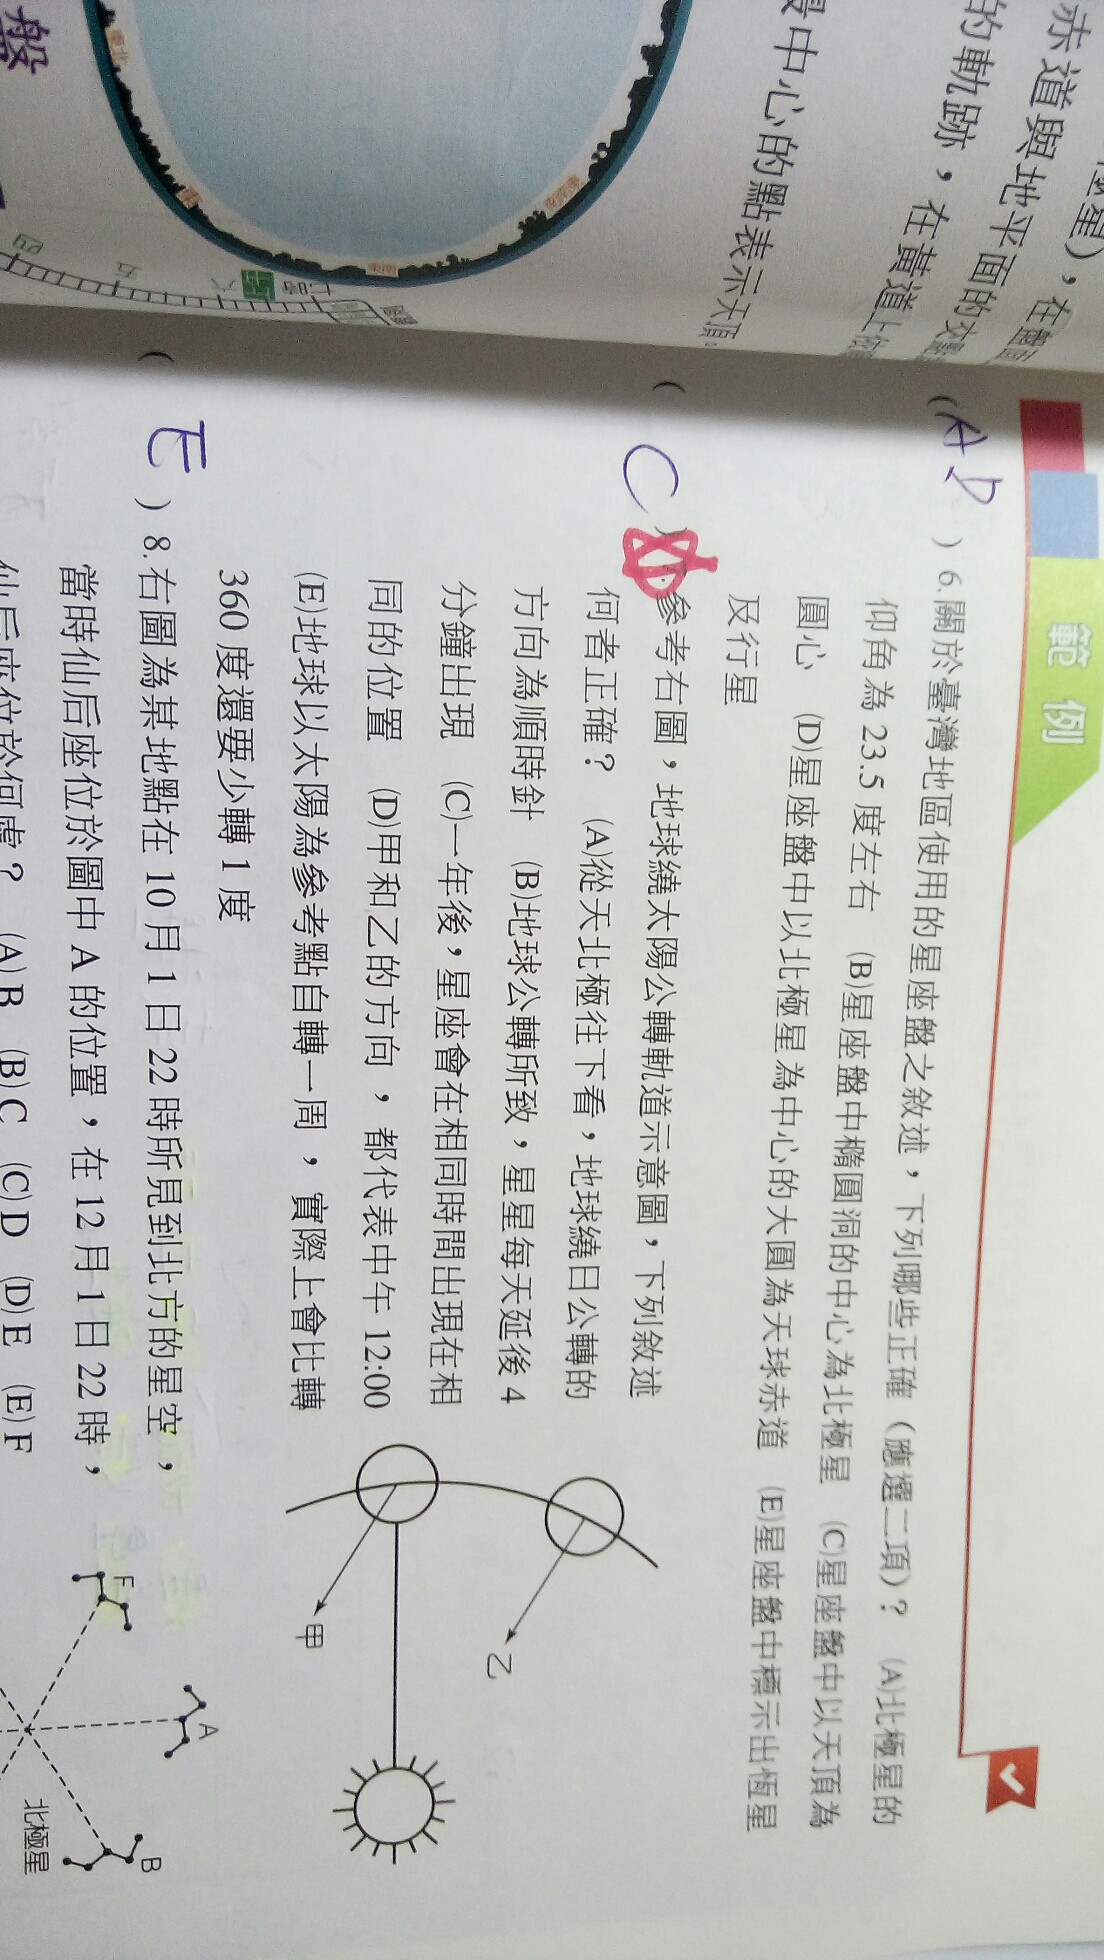 赤道與地平面的交點
的軌跡，在黃道上依
中心的點表示天頂。
範例
(AD)6.關於臺灣地區使用的星座盤之敘述，下列哪些正確（應選二項）？ (A)北極星的
仰角為 23.5 度左右 (B)星座盤中橢圓洞的中心為北極星 (C)星座盤中以天頂為
圓心 (D)星座盤中以北極星為中心的大圓為天球赤道 (E)星座盤中標示出恆星
及行星
( C )參考右圖，地球繞太陽公轉軌道示意圖，下列敘述
何者正確？ (A)從天北極往下看，地球繞日公轉的
方向為順時針 (B)地球公轉所致，星星每天延後 4
分鐘出現 (C)一年後，星座會在相同時間出現在相
同的位置 (D)甲和乙的方向，都代表中午 12:00
(E)地球以太陽為參考點自轉一周，實際上會比轉
360 度還要少轉 1 度
甲
乙
( E )8.右圖為某地點在 10 月 1 日 22 時所見到北方的星空，
當時仙后座位於圖中 A 的位置，在 12 月 1 日 22 時，
仙后座位於何處？ (A)B (B)C (C)D (D)E (E)F
F
A
B
北極星
盤